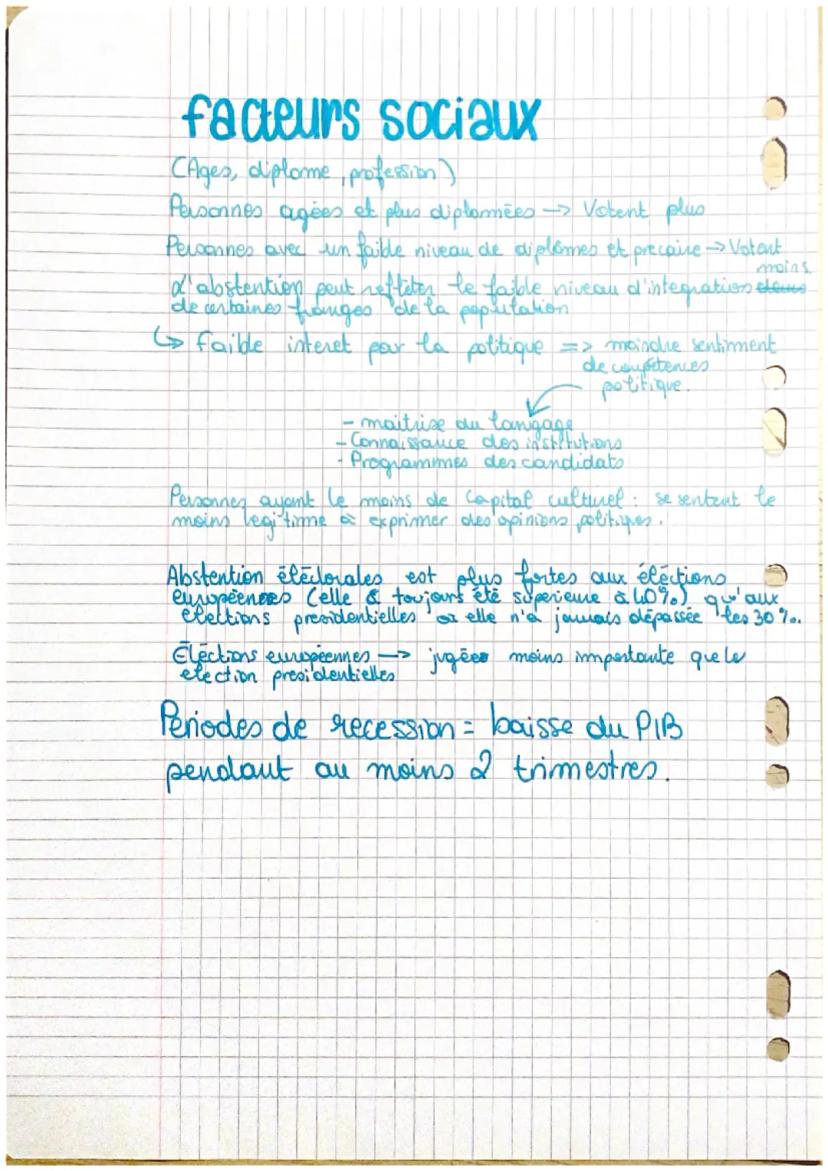 facteurs sociaux
(Ages, diplome, profession)
Personnes agées et plus diplomées -> Votent plus
Personnes avec un faible niveau de diplômes et precaire -> Votent
moins
L'abstention peut refléter le faible niveau d'integration
de certaines franges de la population
↳ faible interet par la politique => moindre sentiment
de compétences
politique.
- maitrise du langage
- Connaissance des institutions
- Programmes des candidats
Personnes ayant le moins de Capital culturel : se sentent le
moins legitime à exprimer des opinions politiques.
Abstention éléctorales est plus fortes aux éléctions
européennes (elle à toujours été superieure à 40%) qu'aux
elections presidentielles où elle n'a jamais dépassée les 30%.
Éléctions européennes -> jugées moins importante que le
election presidentielles
Periodes de recession = baisse du PIB
pendant au moins 2 trimestres.